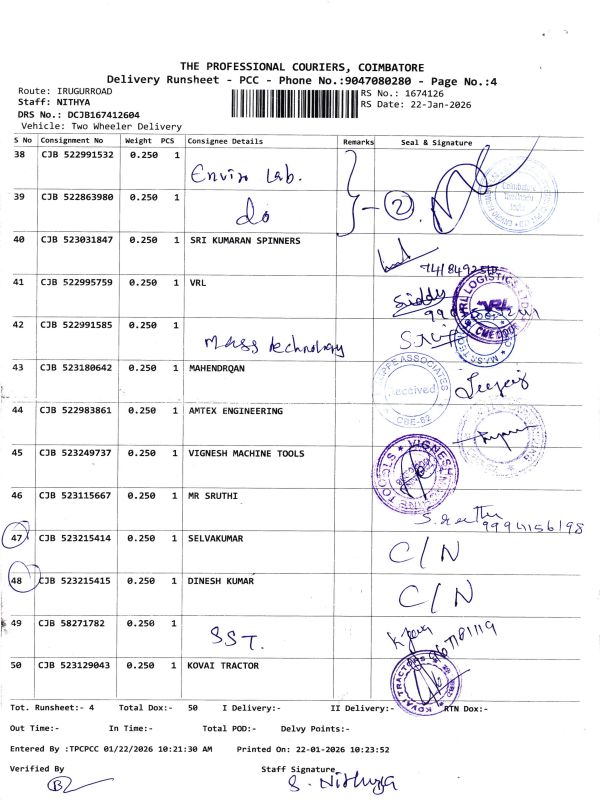 THE PROFESSIONAL COURIERS, COIMBATORE
Delivery Runsheet - PCC - Phone No.:9047080280 - Page No.:4
Route: IRUGURROAD
Staff: NITHYA
DRS No.: DCJB167412604
Vehicle: Two Wheeler Delivery
RS No.: 1674126
RS Date: 22-Jan-2026
S No Consignment No Weight PCS Consignee Details Remarks Seal & Signature
38 CJB 522991532 0.250 1 Enviro Lab.
39 CJB 522863980 0.250 1 do - 2
40 CJB 523031847 0.250 1 SRI KUMARAN SPINNERS
41 CJB 522995759 0.250 1 VRL VRL LOGISTICS LTD
42 CJB 522991585 0.250 1 Mass technology
43 CJB 523180642 0.250 1 MAHENDRQAN ASSOCIATES Received CBE-62
44 CJB 522983861 0.250 1 AMTEX ENGINEERING
45 CJB 523249737 0.250 1 VIGNESH MACHINE TOOLS VIGNESH MACHINE TOOLS
46 CJB 523115667 0.250 1 MR SRUTHI
47 CJB 523215414 0.250 1 SELVAKUMAR C/N
48 CJB 523215415 0.250 1 DINESH KUMAR C/N
49 CJB 58271782 0.250 1 SST.
50 CJB 523129043 0.250 1 KOVAI TRACTOR KOVAI TRACTORS
Tot. Runsheet:- 4 Total Dox:- 50 I Delivery:- II Delivery:- RTN Dox:-
Out Time:- In Time:- Total POD:- Delvy Points:-
Entered By :TPCPCC 01/22/2026 10:21:30 AM Printed On: 22-01-2026 10:23:52
Verified By Staff Signature
S. Nithya